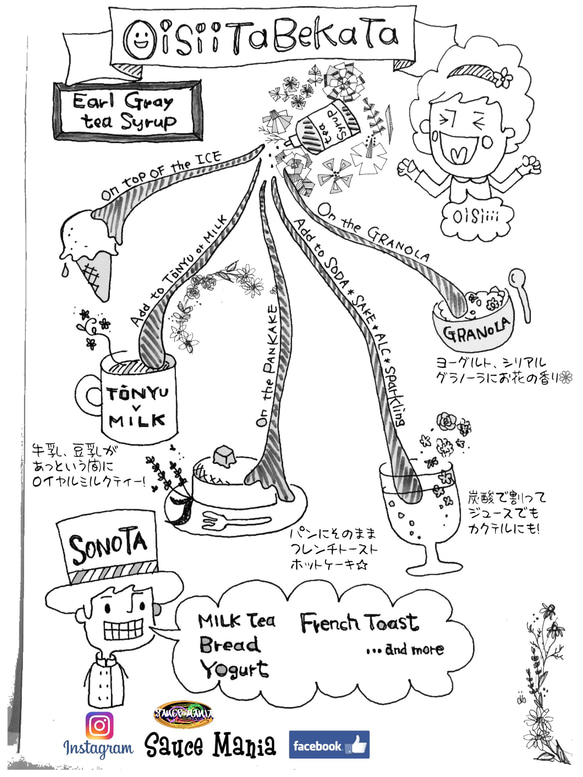 OiSiiTaBeKaTa
Earl Gray
tea Syrup
tea
syrup
OiSiiii
On TOP OF the ICE
Add to TŌNYU or MILK
On the PANKAKE
Add to SODA * SAKE * ALC * Sparkling
On the GRANOLA
GRANOLA
ヨーグルト、シリアル
グラノーラにお花の香り
TŌNYU
or
MILK
牛乳、豆乳が
あっという間に
ロイヤルミルクティー!
パンにそのまま
フレンチトースト
ホットケーキ☆
炭酸で割って
ジュースでも
カクテルにも!
SONOTA
MILK Tea French Toast
Bread ...and more
Yogurt
SAUCE MANIA
Instagram Sauce Mania facebook